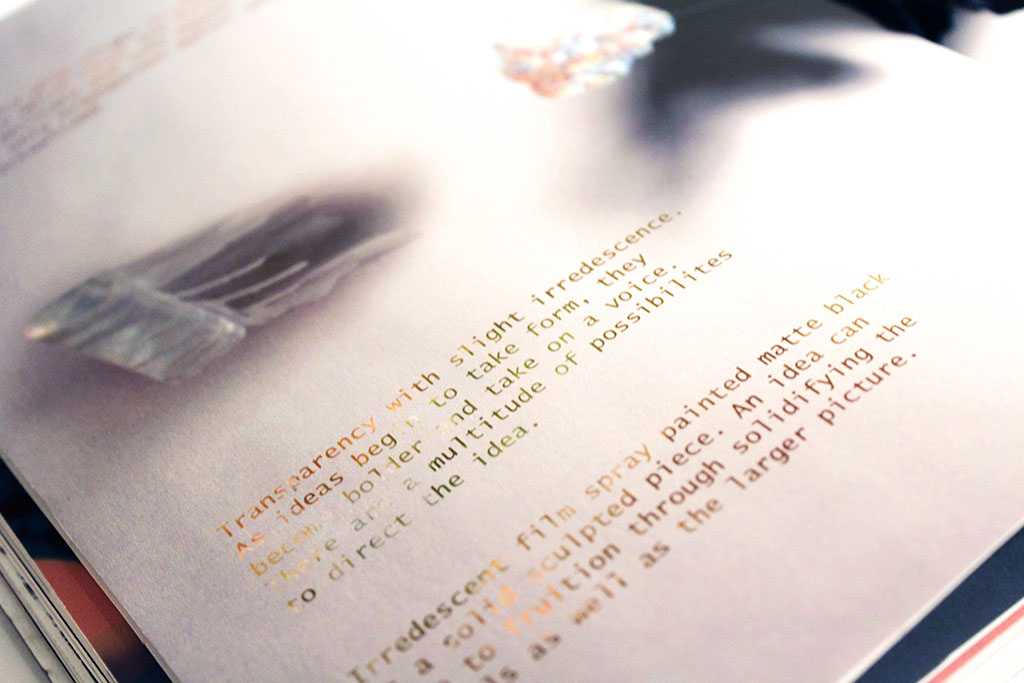 Transparency with slight irredescence.
As ideas begin to take form, they
become bolder and take on a voice.
There are a multitude of possibilites
to direct the idea.
Irredescent film spray painted matte black
a solid sculpted piece. An idea can
to fruition through solidifying the
as well as the larger picture.